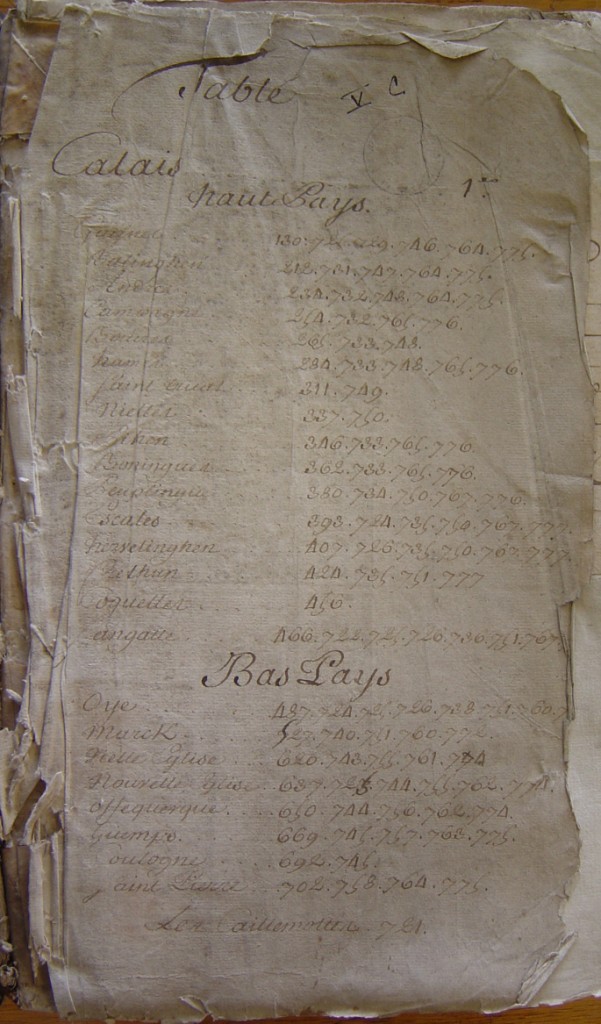 Table V C
Calais
1er
haut Pays.
130.725.729.746.764.775.
Balinghen 212.731.747.764.775.
Andres 234.732.748.764.775.
Campagne 254.732.765.776.
Boucres 265.733.748.
hames 284.733.748.765.776.
Saint 311.749.
Nielles 337.750.
346.733.765.776.
Bonningues 362.733.765.776.
Peuplingue 380.734.750.767.776.
Escales 393.724.735.750.767.777
hervelinghen 407.726.735.750.767.777
424.735.751.777
Coquelles 456.
Sangatte 466.722.725.726.736.751.767.
Bas Pays
Oye 487.724.725.726.738.751.760.
Marck 527.740.751.760.772.
Vielle Eglise 620.743.755.761.774
Nouvelle Eglise 637.723.744.755.762.774.
Offequerque 650.744.756.762.774.
Guemps. 669.745.757.763.775.
Coulogne 692.745.
Saint Pierre 702.758.764.775.
Les Caillemottes 721.